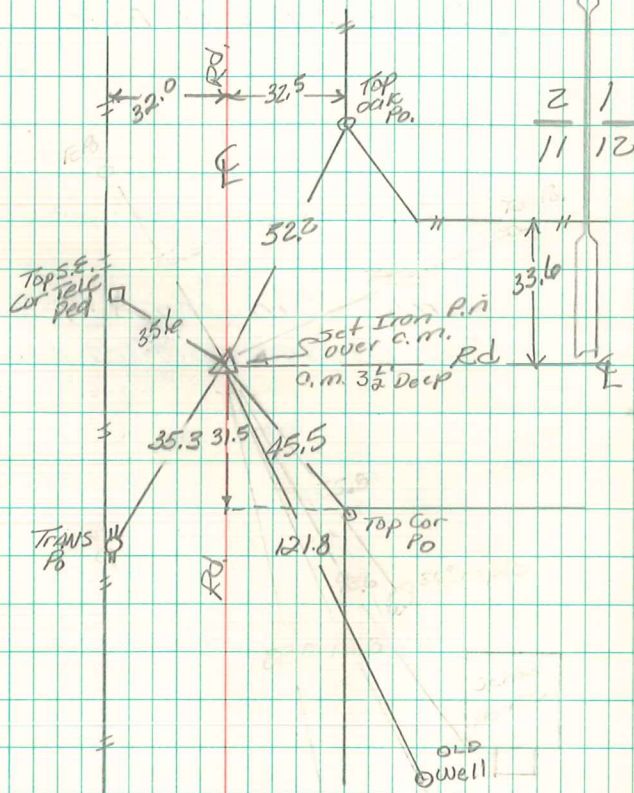 32.0
Rd.
32.5
Top
oak
Po.
2 | 1
11 | 12
℄
52.2
33.6
Top S.E.
Cor Tele
Ped
35.6
Set Iron Pin
over a.m.
Rd
℄
a.m. 3 1/2' Deep
35.3
31.5
45.5
Top Cor
Po
TRANS
Po
121.8
Rd.
OLD
Well